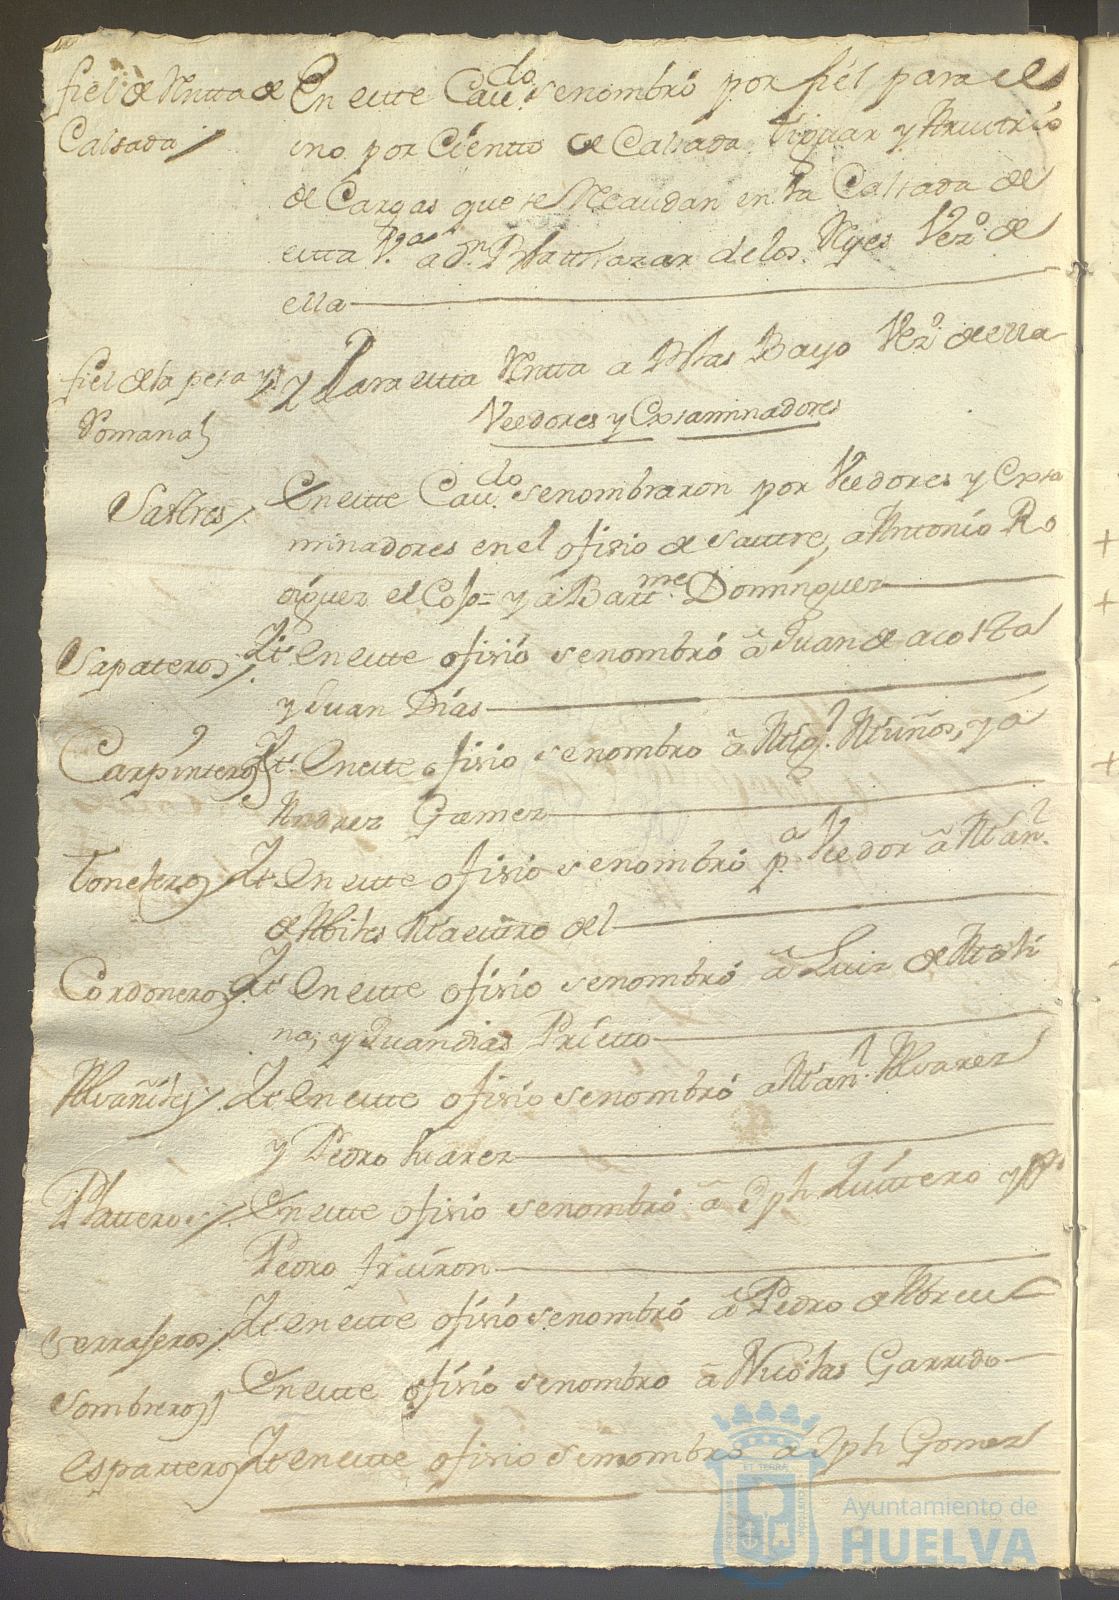 fiel de Rentta de
Calsada
En este Cav.do se nombró por fiel para el
uno por Cientto de Calsada y
de Cargas que se Recaudan en la Calsada de
esta V.a a Dn Balttazar de los Reyes Vez.o de
ella
fiel de la pesa y
Romana
y Para esta Rentta a Blas Bayo Vez.o de ella
Veedores y Exsaminadores
Sastres
En este Cav.do se nombraron por Veedores y Exsa
minadores en el ofisio de sastre, a Antonio Ro
driguez el Cojo = y a Bart.me Dominguez
Sapateros
Yt. En este ofisio se nombró â Juan de acosta
y Juan Días
Carpinteros
Yt. En este ofisio se nombro â Mig.l Muños, y â
Andrez Gamez
Toneleros
Yt. En este ofisio se nombró p.a Veedor â Man.l
de Abiles Maestro del
Cordoneros
Yt En este ofisio se nombró â Luiz de Moli
na, y Juan dias Prietto
Alvañiles
Yt En este ofisio se nombró a Man.l Alvarez
y Pedro Suarez
Platteros
En este ofisio se nombró â Jph Quintero y
Pedro
Serrajeros
Yt En este ofisio se nombró â Pedro de Abreu
Sombreros
En este ofisio se nombro â Nicolas Garrido
Esparteros
Yt En este ofisio se nombro a Jph Gomez
Ayuntamiento de
HUELVA